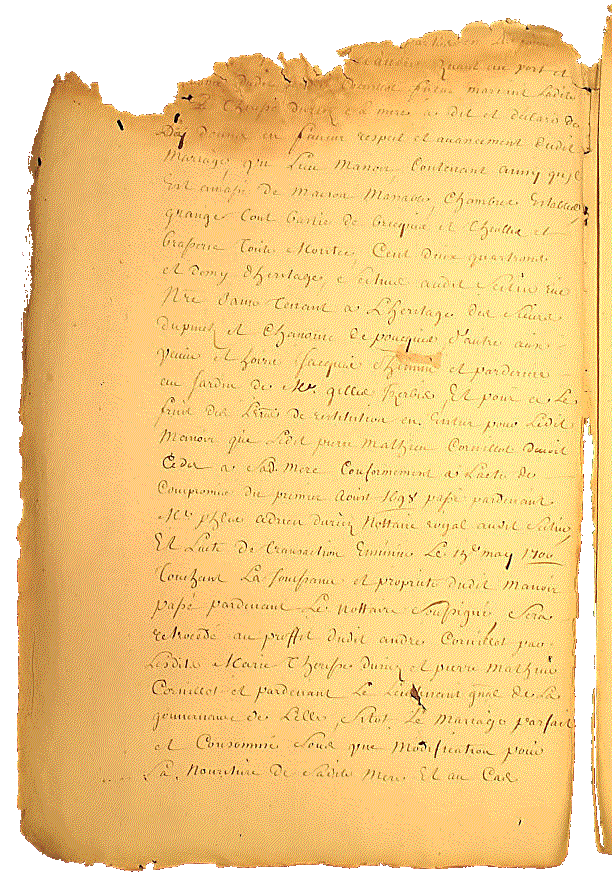 quant au port et
dudit Cornillot futur mariant Ladite
Therese Duriez sa mere a dit et declaré de
Donner en faueur respect et auancement dudit
Mariage un Lieu Manoir Contenant
Est amasé de Maison Manable Chambre Estables
grange Tout bastie de bricques et Theolles et
brasserie Toute Montée, Cent Deux quartrons
et Demy dheritage, scitué audit Seclin rue
Nre Dame Tenant a L'heritage des Sieurs
dupuich et Chanoine de pourquié d'autre aux
veuve et hoirs Jacques et par derriere
au Jardin de Mre. gilles Et pour ce Le
fruit des Lettres de restitution en Entier pour Ledit
Manoir que Ledit pierre Mathieu Cornillot deuoit
Ceder a Sad. mere Conformement a Lacte de
Compromis du premier Aoust 1698 passé pardeuant
Mre. adrien duriez Nottaire royal audit Seclin
Et Lacte de Transaction Ensuiuie Le 15e may 1700
Touchant La Joussance et proprieté dudit Manoir
passé pardeuant Le Nottaire Soussigné Sera
retrocedé au proffit dudit andre Cornillot par
Lesdits Marie Therese Duriez et pierre Mathieu
Cornillot et pardeuant Le Lieutenant gnal de La
gouuernance de Lille, Sitot Le Mariage parfait
et Consommé Sous que Modification pour
La Nouriture de Ladite Mere Et au Cas